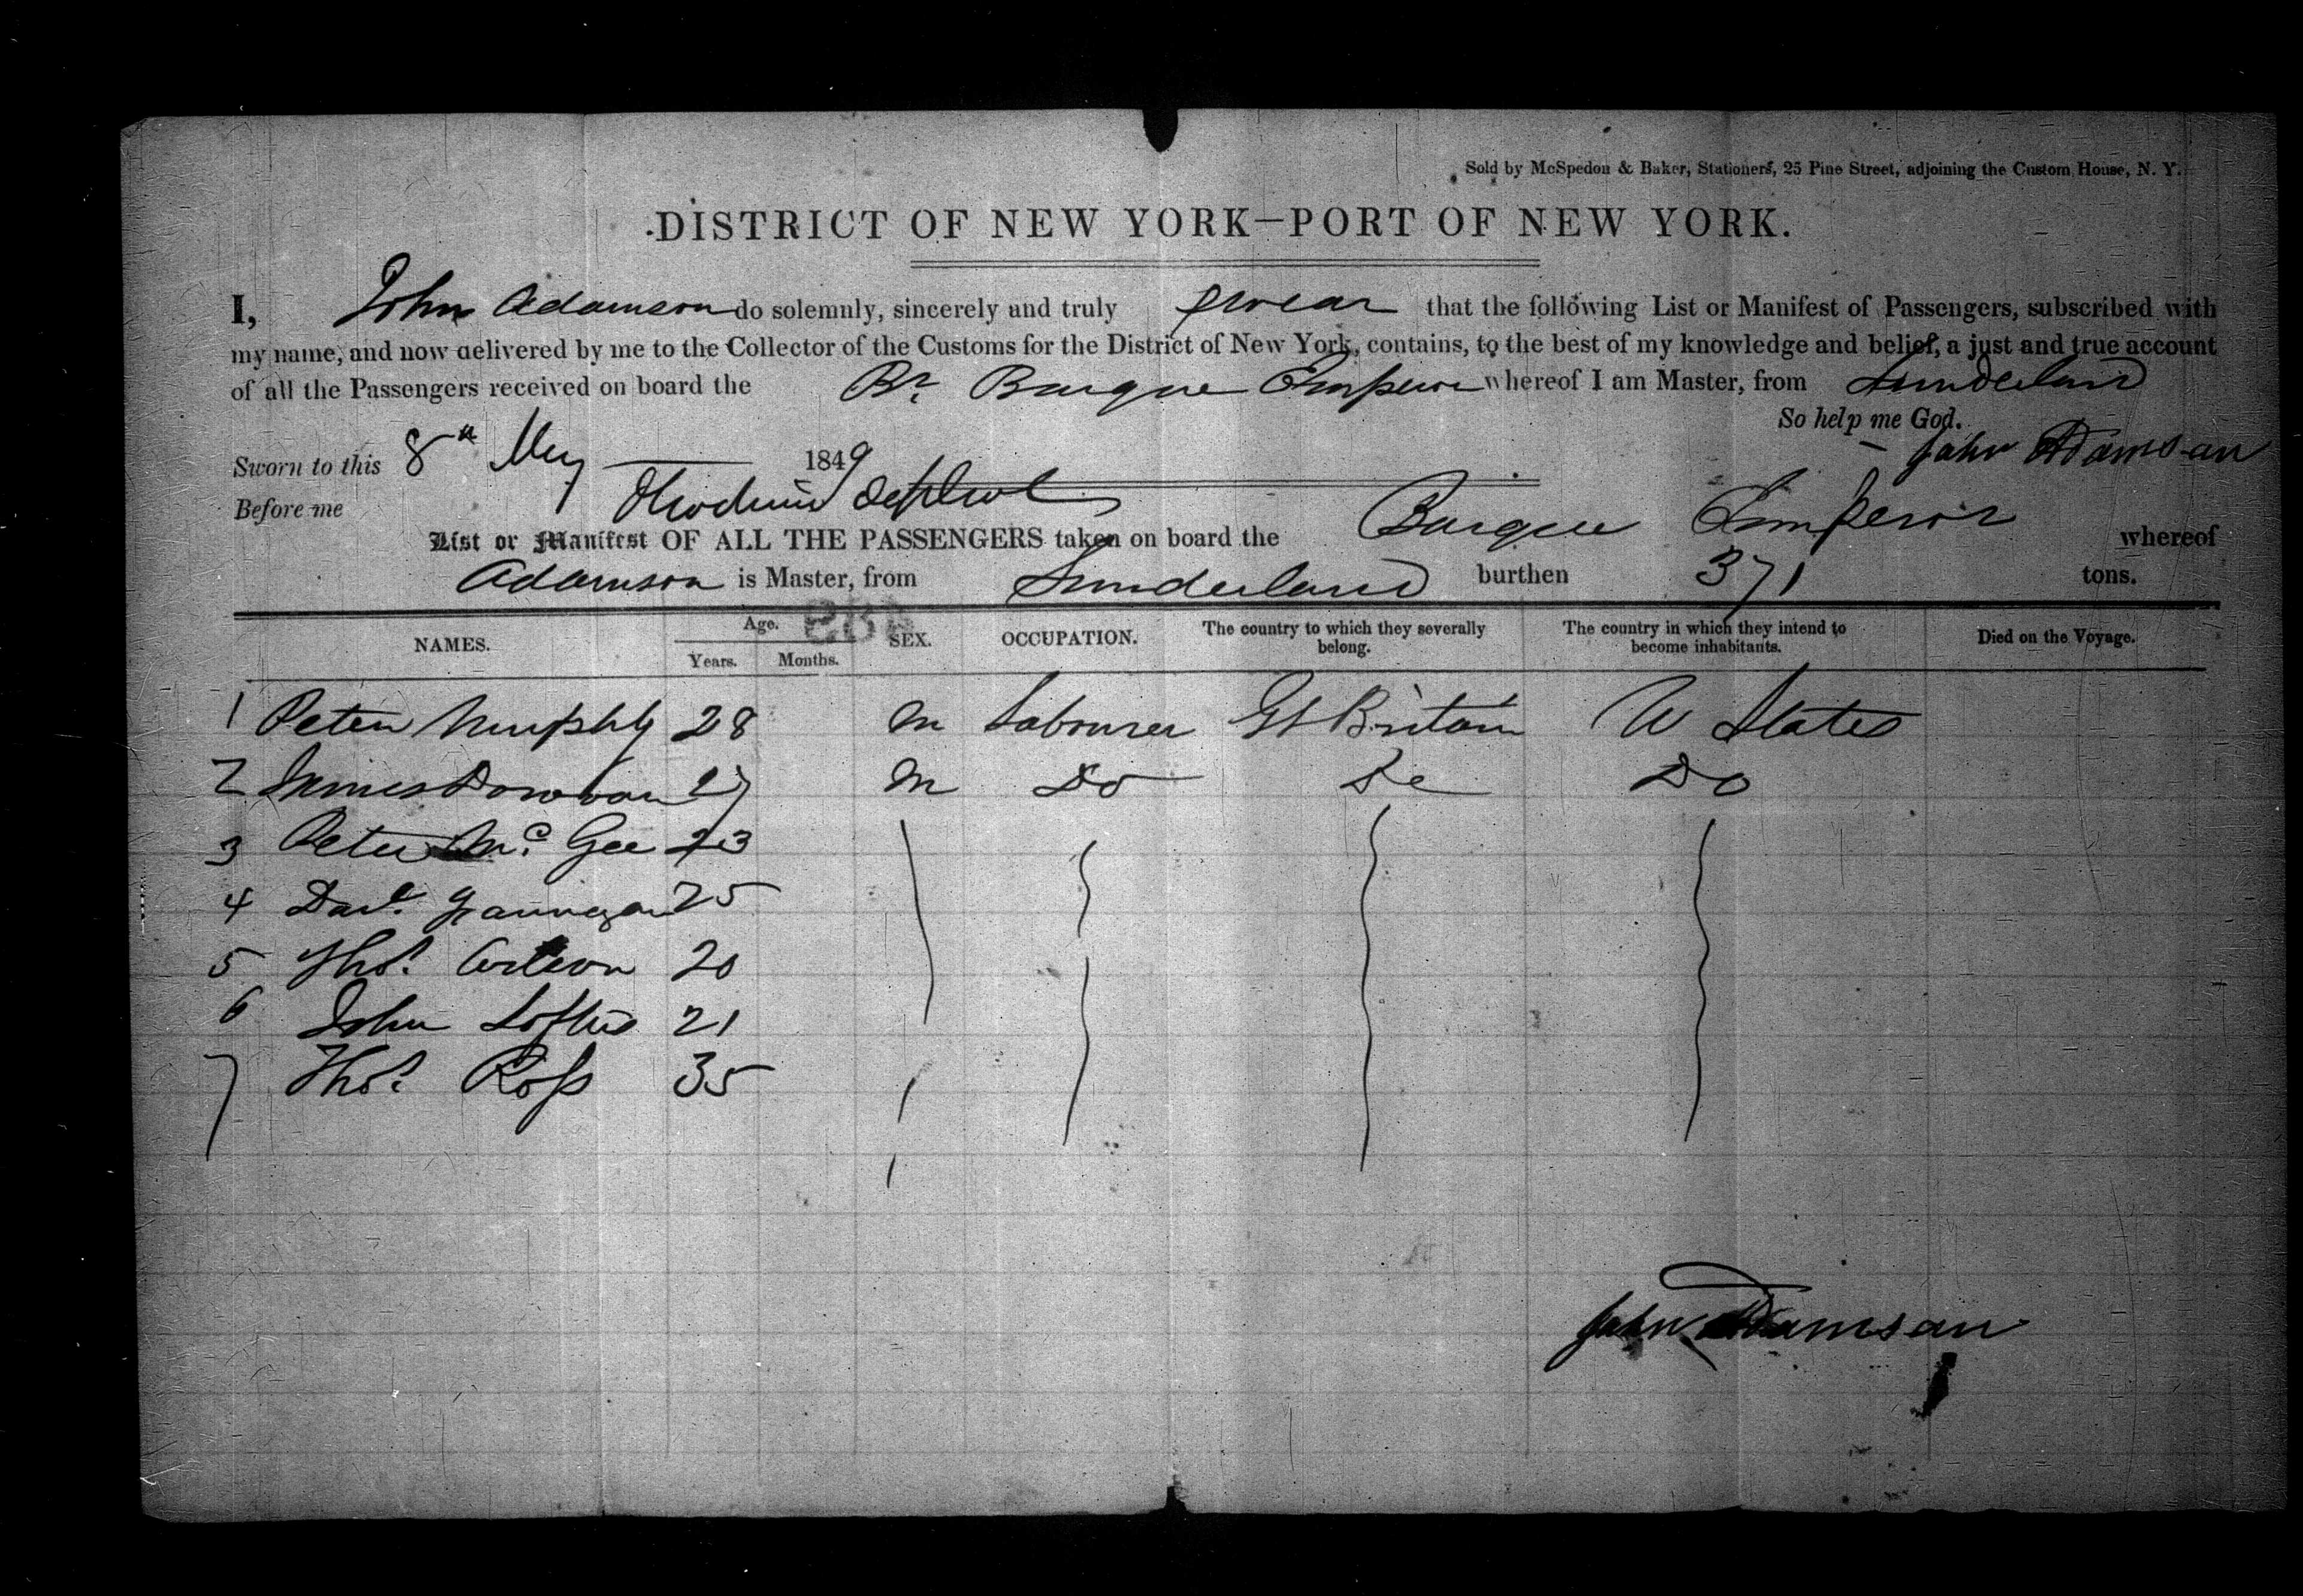 Sold by McSpedon & Baker, Stationers, 25 Pine Street, adjoining the Custom House, N. Y.
DISTRICT OF NEW YORK—PORT OF NEW YORK.
I, John Adamson do solemnly, sincerely and truly swear that the following List or Manifest of Passengers, subscribed with
my name, and now delivered by me to the Collector of the Customs for the District of New York, contains, to the best of my knowledge and belief, a just and true account
of all the Passengers received on board the Br. Barque Emperor whereof I am Master, from Sunderland
So help me God.
Sworn to this 8th May 1849 John Adamson
Before me
List or Manifest OF ALL THE PASSENGERS taken on board the Barque Emperor whereof
Adamson is Master, from Sunderland burthen 371 tons.
NAMES. Age. Years. Months. SEX. OCCUPATION. The country to which they severally belong. The country in which they intend to become inhabitants. Died on the Voyage.
1 Peter Murphy 28 M Labourer Gt Britain U States
2 James Donovan 27 M Do Do Do
3 Peter Mc Gee 23
4 25
5 Thos. 20
6 John Loftus 21
7 Thos. Ross 35
John Adamson